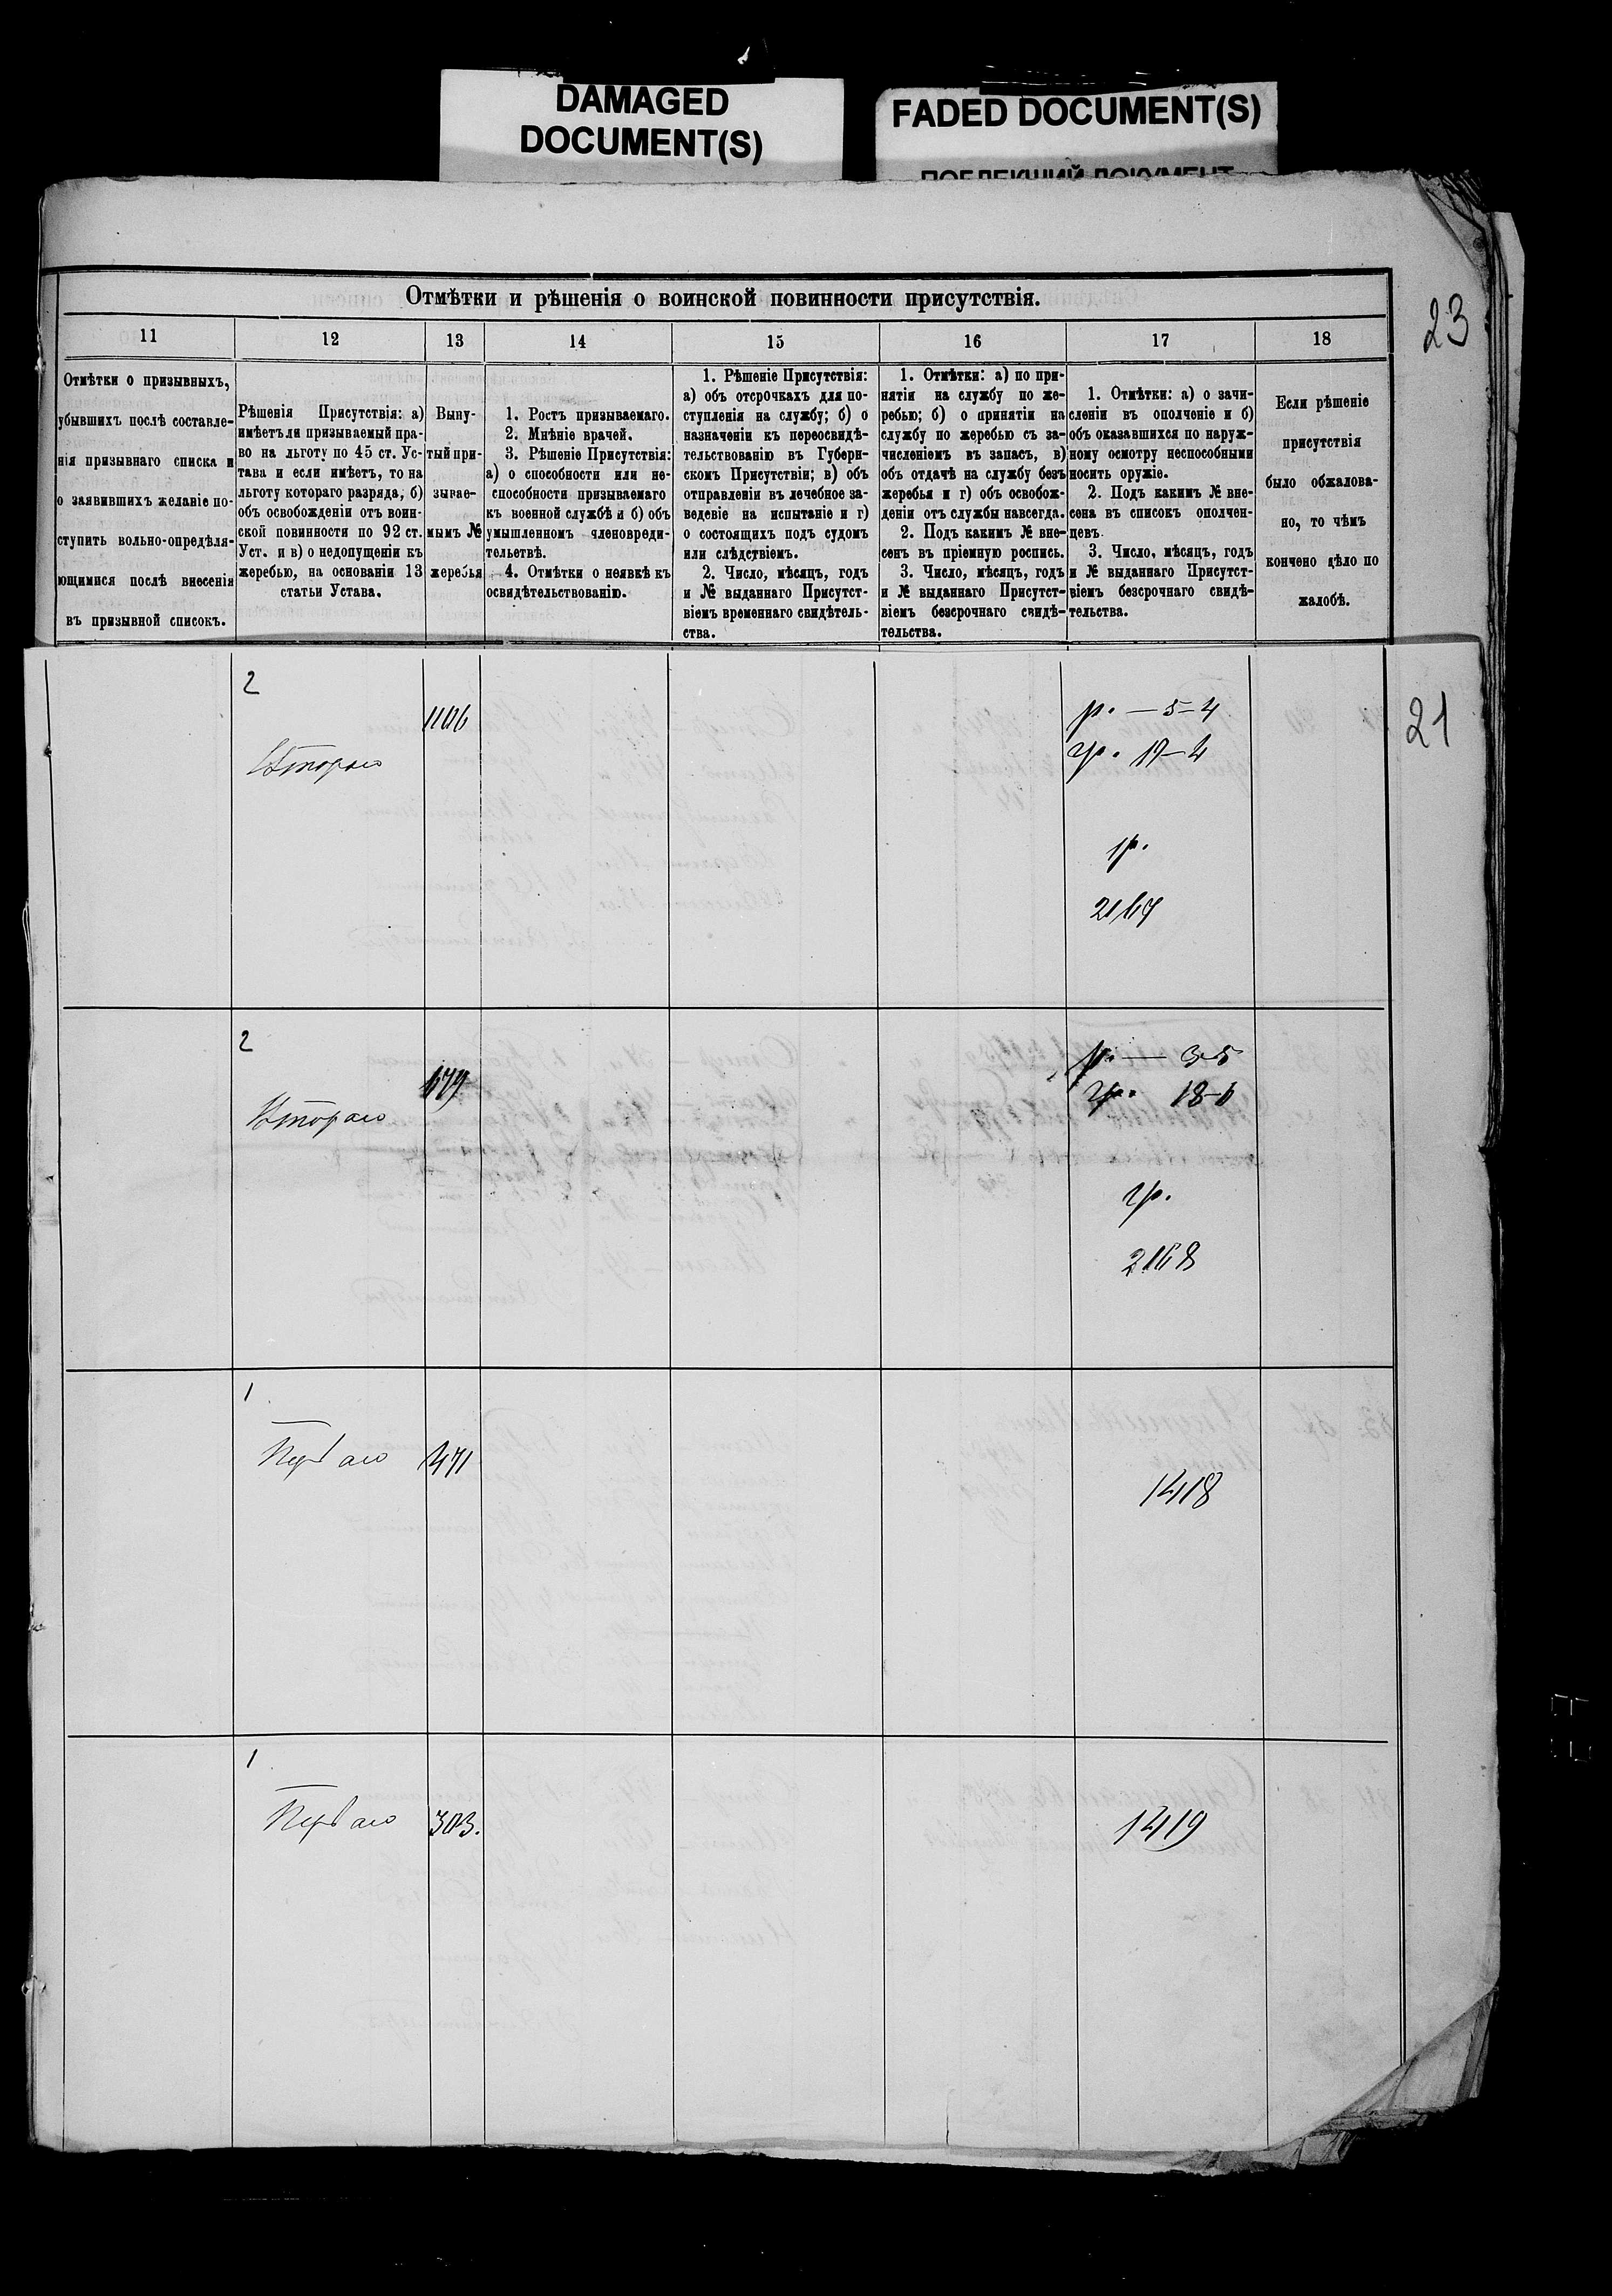 DAMAGED
DOCUMENT(S)
FADED DOCUMENT(S)
ПОБЛЕКШИЙ ДОКУМЕНТ
23
Отмѣтки и рѣшенія о воинской повинности присутствія.
11
12
13
14
15
16
17
18
Отмѣтки о призывныхъ,
убывшихъ послѣ составле-
нія призывнаго списка и
о заявившихъ желаніе по-
ступить вольно-опредѣля-
ющимися послѣ внесенія
въ призывной списокъ.
Рѣшенія Присутствія: а)
имѣетъ ли призываемый пра-
во на льготу по 45 ст. Ус-
тава и если имѣетъ, то на
льготу котораго разряда, б)
объ освобожденіи отъ воин-
ской повинности по 92 ст.
Уст. и в) о недопущеніи къ
жеребью, на основаніи 13
статьи Устава.
Выну-
тый при-
зывае-
мымъ №
жеребья
1. Ростъ призываемаго.
2. Мнѣніе врачей.
3. Рѣшеніе Присутствія:
а) о способности или не-
способности призываемаго
къ военной службѣ и б) объ
умышленномъ членовреди-
тельетвѣ.
4. Отмѣтки о неявкѣ къ
освидѣтельствованію.
1. Рѣшеніе Присутствія:
а) объ отсрочкахъ для по-
ступленія на службу; б) о
назначеніи къ переосвидѣ-
тельствованію въ Губерн-
скомъ Присутствіи; в) объ
отправленіи въ лечебное за-
веденіе на испытаніе и г)
о состоящихъ подъ судомъ
или слѣдствіемъ.
2. Число, мѣсяцъ, годъ
и № выданнаго Присутст-
віемъ временнаго свидѣтель-
ства.
1. Отмѣтки: а) по при-
нятіи на службу по же-
ребью; б) о принятіи на
службу по жеребью съ за-
численіемъ въ запасъ, в)
объ отдачѣ на службу безъ
жеребья и г) объ освобож-
деніи отъ службы навсегда.
2. Подъ какимъ № вне-
сенъ въ пріемную роспись.
3. Число, мѣсяцъ, годъ
и № выданнаго Присутст-
віемъ безсрочнаго свидѣ-
тельства.
1. Отмѣтки: а) о зачи-
сленіи въ ополченіе и б)
объ оказавшихся по наруж-
ному осмотру неспособными
носить оружіе.
2. Подъ какимъ № вне-
сена въ списокъ ополчен-
цевъ.
3. Число, мѣсяцъ, годъ
и № выданнаго Присутст-
віемъ безсрочнаго свидѣ-
тельства.
Если рѣшеніе
присутствія
было обжалова-
но, то чѣмъ
кончено дѣло по
жалобѣ.
21
2
Втораго
1106
р. — 5-4
гр. 17-4
гр.
2167
2
Втораго
679
р. — 3-5
гр. 18-6
гр.
2168
1
Перваго
1471
1418
1
Перваго
303.
1419